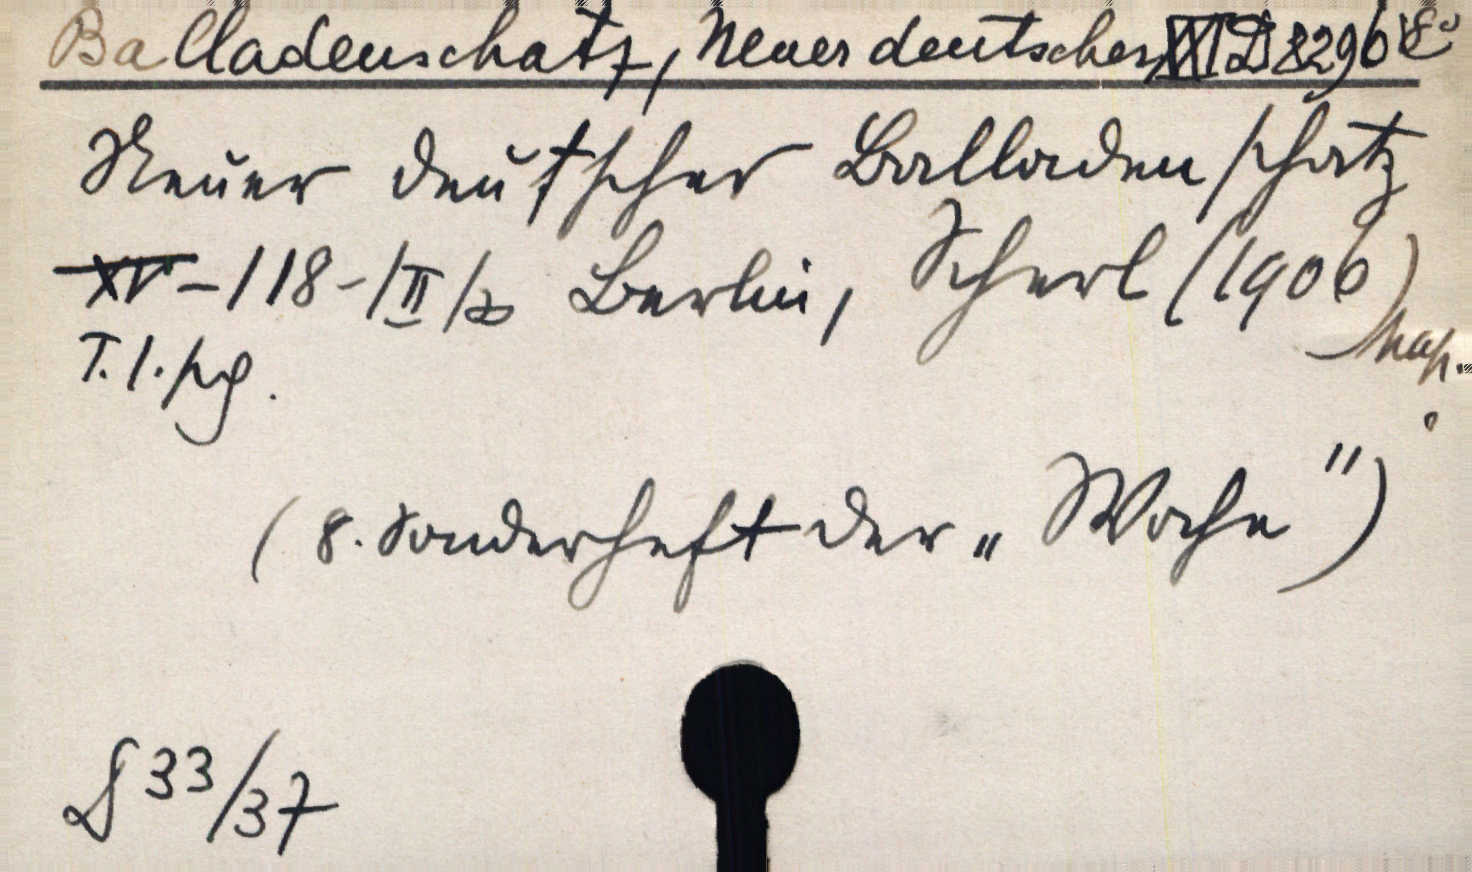 Balladenschatz, Neuer deutscher XXI D 8296
Neuer deutscher Balladenschatz
XV-118-/II/ Berlin, Scherl (1906)
T. 1. pg.
(8. Sonderheft der „Woche")
33/37